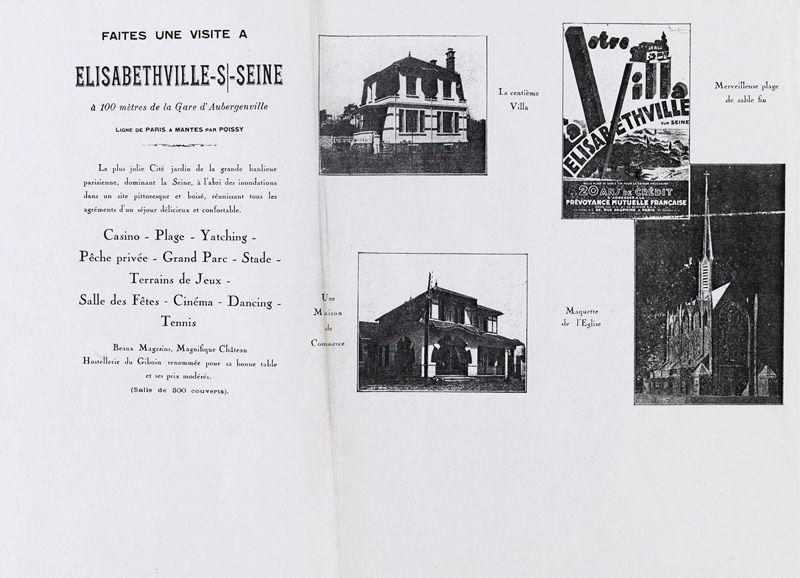 FAITES UNE VISITE A
ELISABETHVILLE-S/-SEINE
à 100 mètres de la Gare d'Aubergenville
LIGNE DE PARIS A MANTES PAR POISSY
La plus jolie Cité jardin de la grande banlieue
parisienne, dominant la Seine, à l'abri des inondations
dans un site pittoresque et boisé, réunissant tous les
agréments d'un séjour délicieux et confortable.
Casino - Plage - Yatching -
Pêche privée - Grand Parc - Stade -
Terrains de Jeux -
Salle des Fêtes - Cinéma - Dancing -
Tennis
Beaux Magasins, Magnifique Château
Hostellerie du Giboin renommée pour sa bonne table
et ses prix modérés.
(Salle de 300 couverts).
La centième
Villa
Une
Maison
de
Commerce
Votre
Villa
à
ELISABETHVILLE
SUR SEINE
20 ANS DE CRÉDIT
S'ADRESSER A LA
PRÉVOYANCE MUTUELLE FRANÇAISE
RUE DAUPHINE A PARIS
Merveilleuse plage
de sable fin
Maquette
de l'Eglise